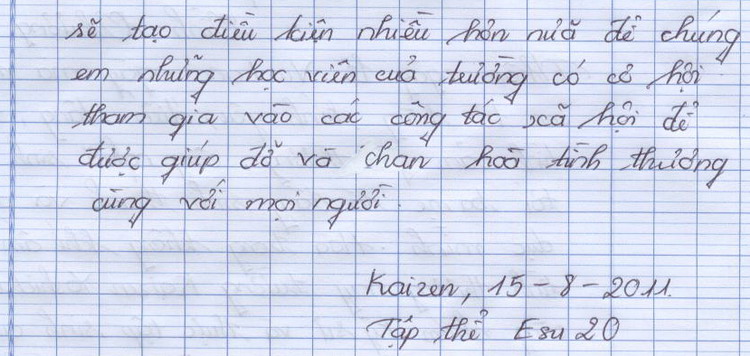 sẽ tạo điều kiện nhiều hơn nữa để chúng
em những học viên của trường có cơ hội
tham gia vào các công tác xã hội để
được giúp đỡ và chan hoà tình thương
cùng với mọi người.
Kaizen, 15-8-2011.
Tập thể Esu 20